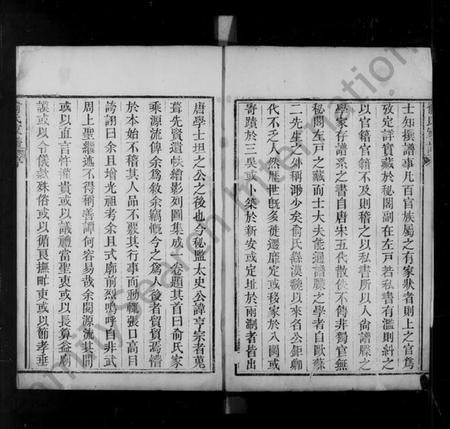 士知撰譜事凡百官族屬之有家狀者則上之官爲
攷定詳實藏於秘閣副在左戸若私書有濫則糾之
以官籍官籍不及則稽之以私書所以人尙譜牒之
學家存譜系之書自唐宋五代散佚不傳非獨官無
秘閣左戸之藏而士大夫能通譜牒之學者自歐蘇
二先生之外稱渺少矣俞氏繇漢魏以來名公鉅卿
代不乏人然歷世旣多徙遷靡定或移家於八閩或
寄蹟於三吳或卜築於新安或定址於兩淛者皆出
唐學士坦之公之後也今秘監太史公諱亨宗者蒐
葺先賢遺帙繪影列圖集成 卷題其首曰俞氏家
乘源流俾余爲敘余竊慨今之爲人後者貿貿焉懵
於本始不稽其人品不覈其行事而動輒張口高目
誇詡曰余且增光祖考余且式廓前烈嗚呼自非武
周上聖繼述不得稱善譚何容易哉余閱源流其間
或以直言忤權貴或以議禮當聖衷或以長算
謨或以令儀敦殊俗或以循良撫畔吏或以飾孝垂
Family Search International